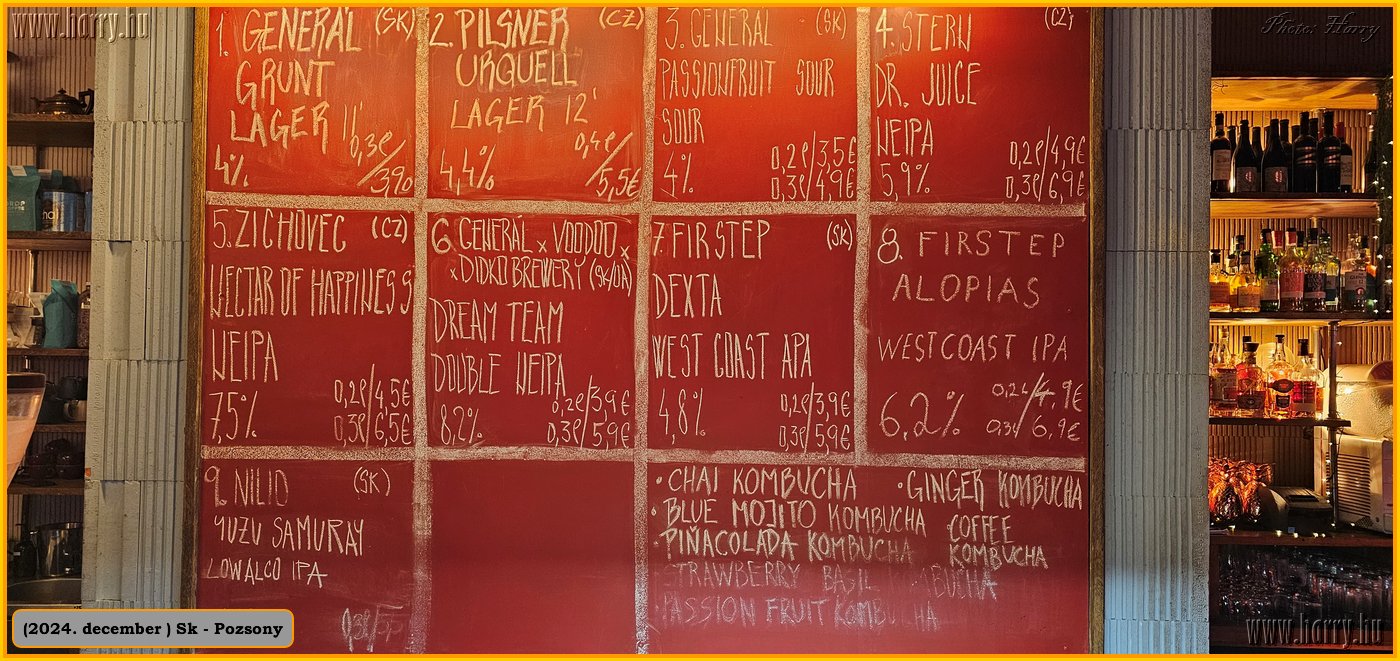 www.horry.hu
Photo: Horry
1. GENERÁL (SK)
GRUNT
LAGER 11°
4% 0,3ℓ/
3,90
2. PILSNER (CZ)
URQUELL
LAGER 12°
4,4% 0,4ℓ/
5,5€
3. GENERÁL (SK)
PASSIONFRUIT SOUR
SOUR
4% 0,2ℓ/3,5€
0,3ℓ/4,9€
4. STERN (CZ)
DR. JUICE
NEIPA
5,9% 0,2ℓ/4,9€
0,3ℓ/6,9€
5. ZICHOVEC (CZ)
NECTAR OF HAPPINESS
NEIPA
7,5% 0,2ℓ/4,5€
0,3ℓ/6,5€
6. GENERÁL x VOODOO x
x DIDKO BREWERY (SK/UA)
DREAM TEAM
DOUBLE NEIPA
8,2% 0,2ℓ/3,9€
0,3ℓ/5,9€
7. FIRSTEP (SK)
DEXTA
WEST COAST APA
4,8% 0,2ℓ/3,9€
0,3ℓ/5,9€
8. FIRSTEP
ALOPIAS
WESTCOAST IPA
6,2% 0,2ℓ/4,9€
0,3ℓ/6,9€
9. NILIO (SK)
YUZU SAMURAY
LOWALCO IPA
0,3ℓ/
• CHAI KOMBUCHA
• BLUE MOJITO KOMBUCHA
• PIÑACOLADA KOMBUCHA
STRAWBERRY BASIL KOMBUCHA
PASSION FRUIT KOMBUCHA
• GINGER KOMBUCHA
COFFEE
KOMBUCHA
(2024. december ) Sk - Pozsony
www.horry.hu